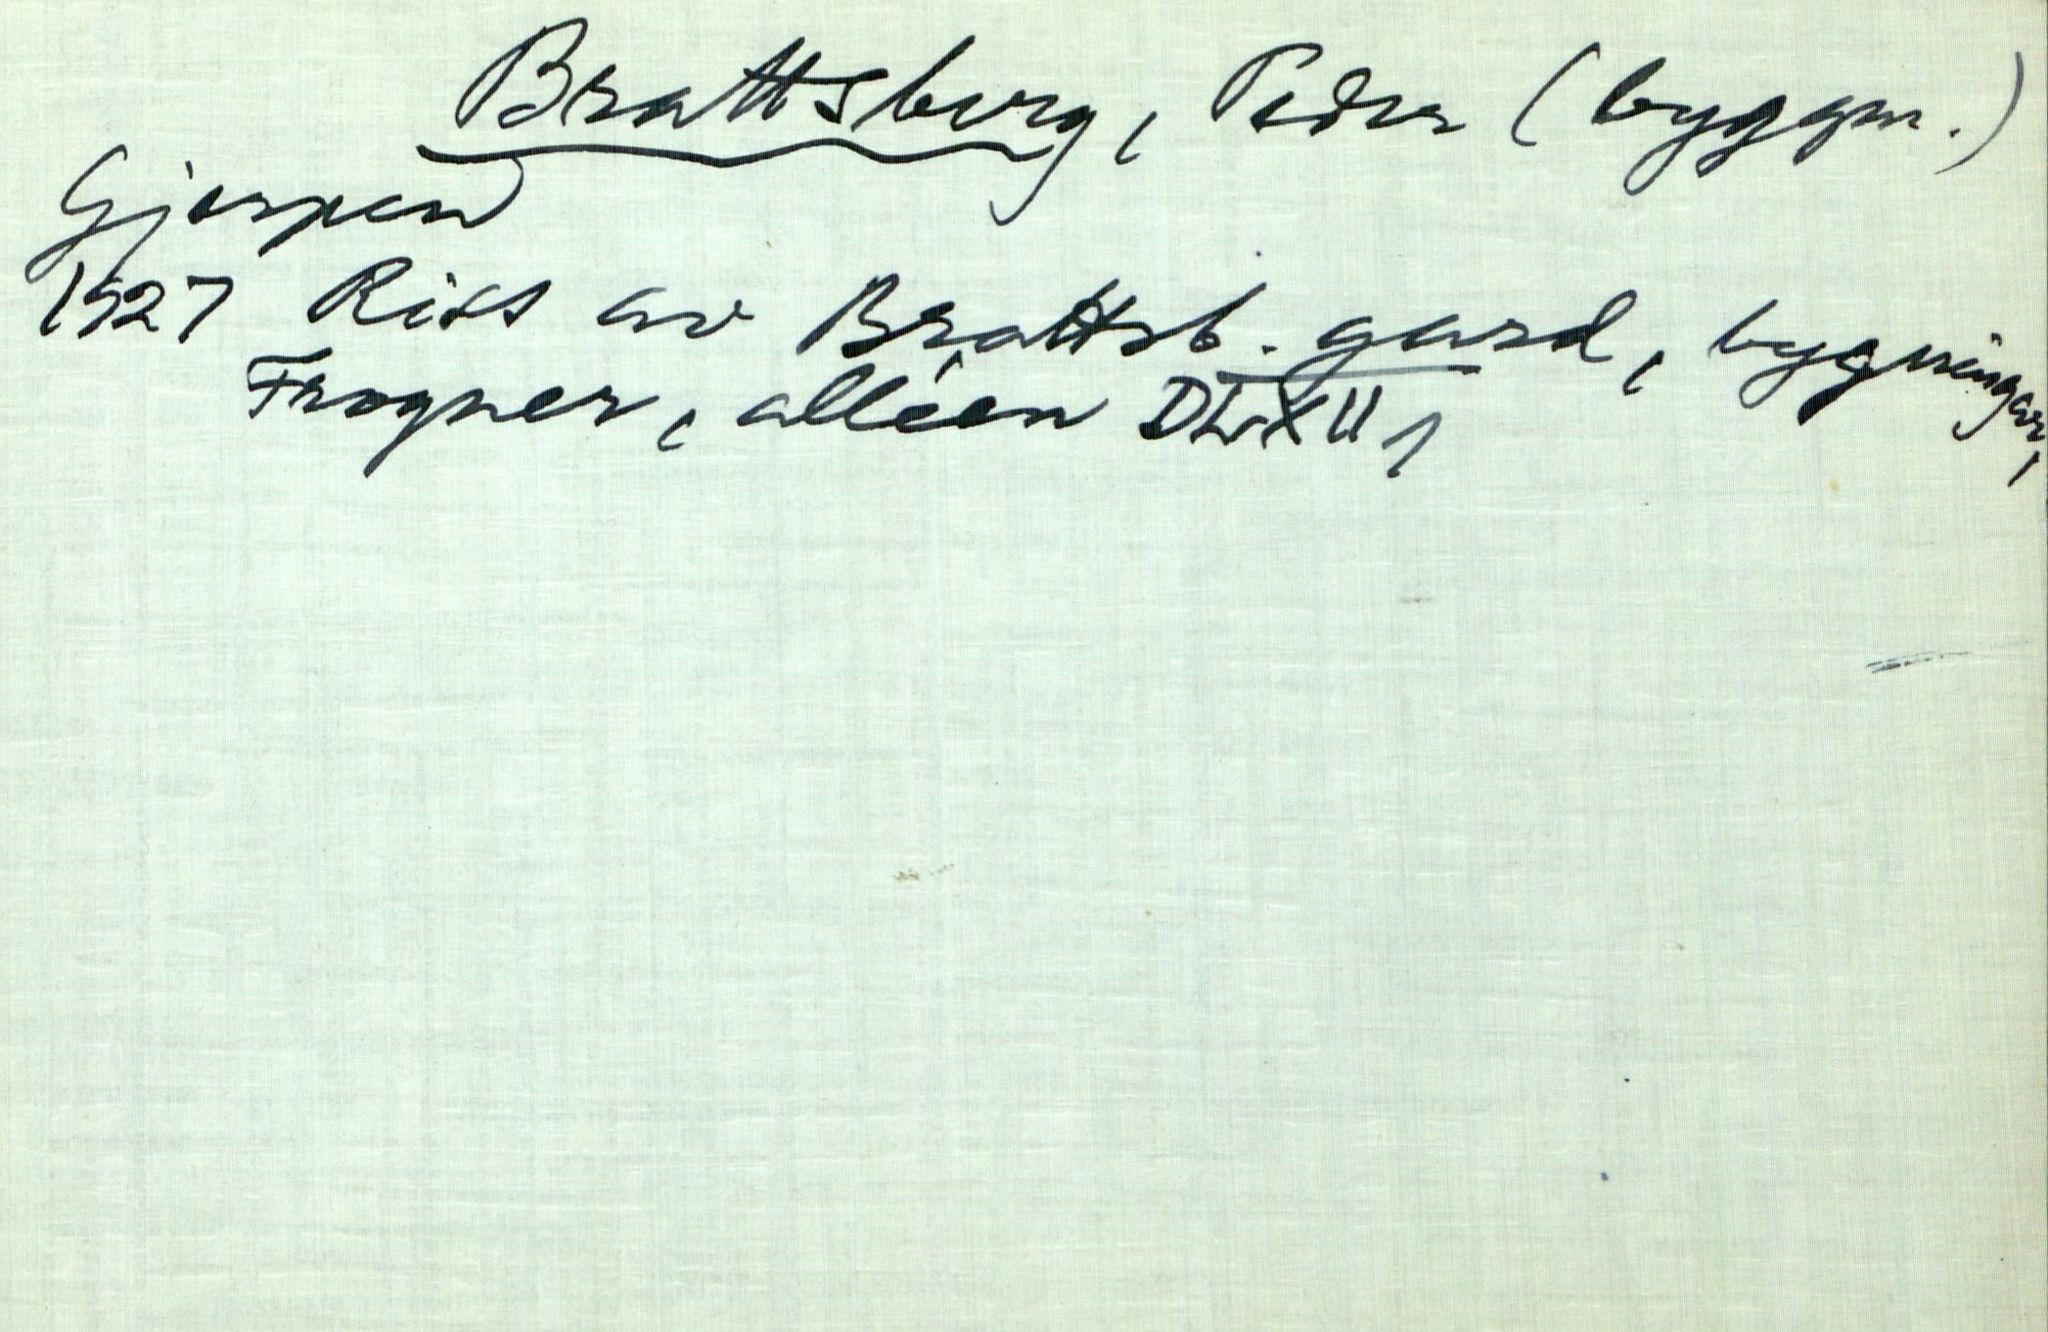 Brattsberg, Peder (byggm.)
Gjerpen
1927 Riss av Brattsb. gard, bygningar,
Frogner, alléen DLXII,